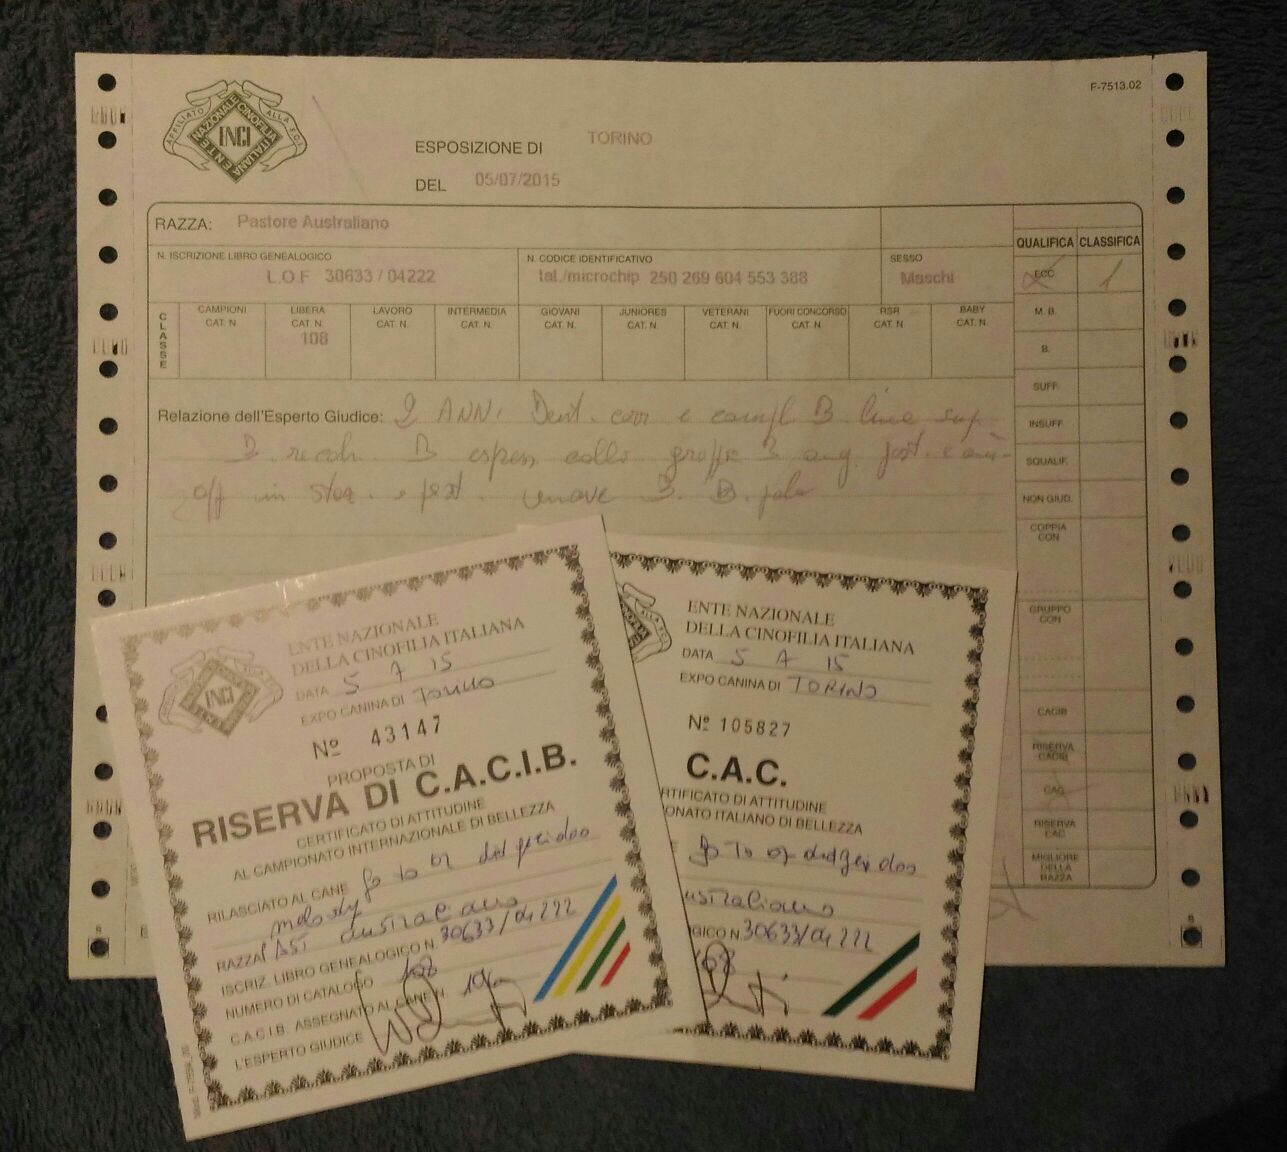 F-7513.02
AFFILIATO ALLA F.C.I.
ENTE NAZIONALE CINOFILIA ITALIANA
ESPOSIZIONE DI TORINO
DEL 05/07/2015
RAZZA: Pastore Australiano
QUALIFICA CLASSIFICA
N. ISCRIZIONE LIBRO GENEALOGICO
L.O.F 30633 / 04222
N. CODICE IDENTIFICATIVO
tat./microchip 250 269 604 553 388
SESSO
Maschi
ECC. 1
CLASSE
CAMPIONI CAT. N.
LIBERA CAT. N. 108
LAVORO CAT. N.
INTERMEDIA CAT. N.
GIOVANI CAT. N.
JUNIORES CAT. N.
VETERANI CAT. N.
FUORI CONCORSO CAT. N.
RSR CAT. N.
BABY CAT. N.
M. B.
B.
SUFF.
INSUFF.
SQUALIF.
NON GIUD.
COPPIA CON
GRUPPO CON
CACIB
RISERVA CACIB
CAC
RISERVA CAC
MIGLIORE DELLA RAZZA
Relazione dell'Esperto Giudice: 2 ANNI Dent. corr e compl B linea sup
B B espress collo B ang post. e
off in staz. e B. B.
ENTE NAZIONALE
DELLA CINOFILIA ITALIANA
DATA 5 7 15
EXPO CANINA DI Torino
Nº 43147
PROPOSTA DI
RISERVA DI C.A.C.I.B.
CERTIFICATO DI ATTITUDINE
AL CAMPIONATO INTERNAZIONALE DI BELLEZZA
RILASCIATO AL CANE go to of didgeridoo
melody
RAZZA PAST australiano
ISCRIZ. LIBRO GENEALOGICO N. 30633/04222
NUMERO DI CATALOGO 108
C.A.C.I.B. ASSEGNATO AL CANE N.
L'ESPERTO GIUDICE
ENTE NAZIONALE
DELLA CINOFILIA ITALIANA
DATA 5 7 15
EXPO CANINA DI TORINO
Nº 105827
C.A.C.
RTIFICATO DI ATTITUDINE
ONATO ITALIANO DI BELLEZZA
go to of didgeridoo
ustraliano
GICO N. 30633/04222
108